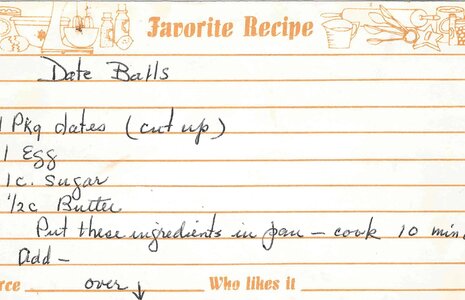 Favorite Recipe
Date Balls
1 Pkg dates (cut up)
1 Egg
1 c. Sugar
1/2 c Butter
Put these ingredients in pan - cook 10 min
Add -
rce over ↓ Who likes it